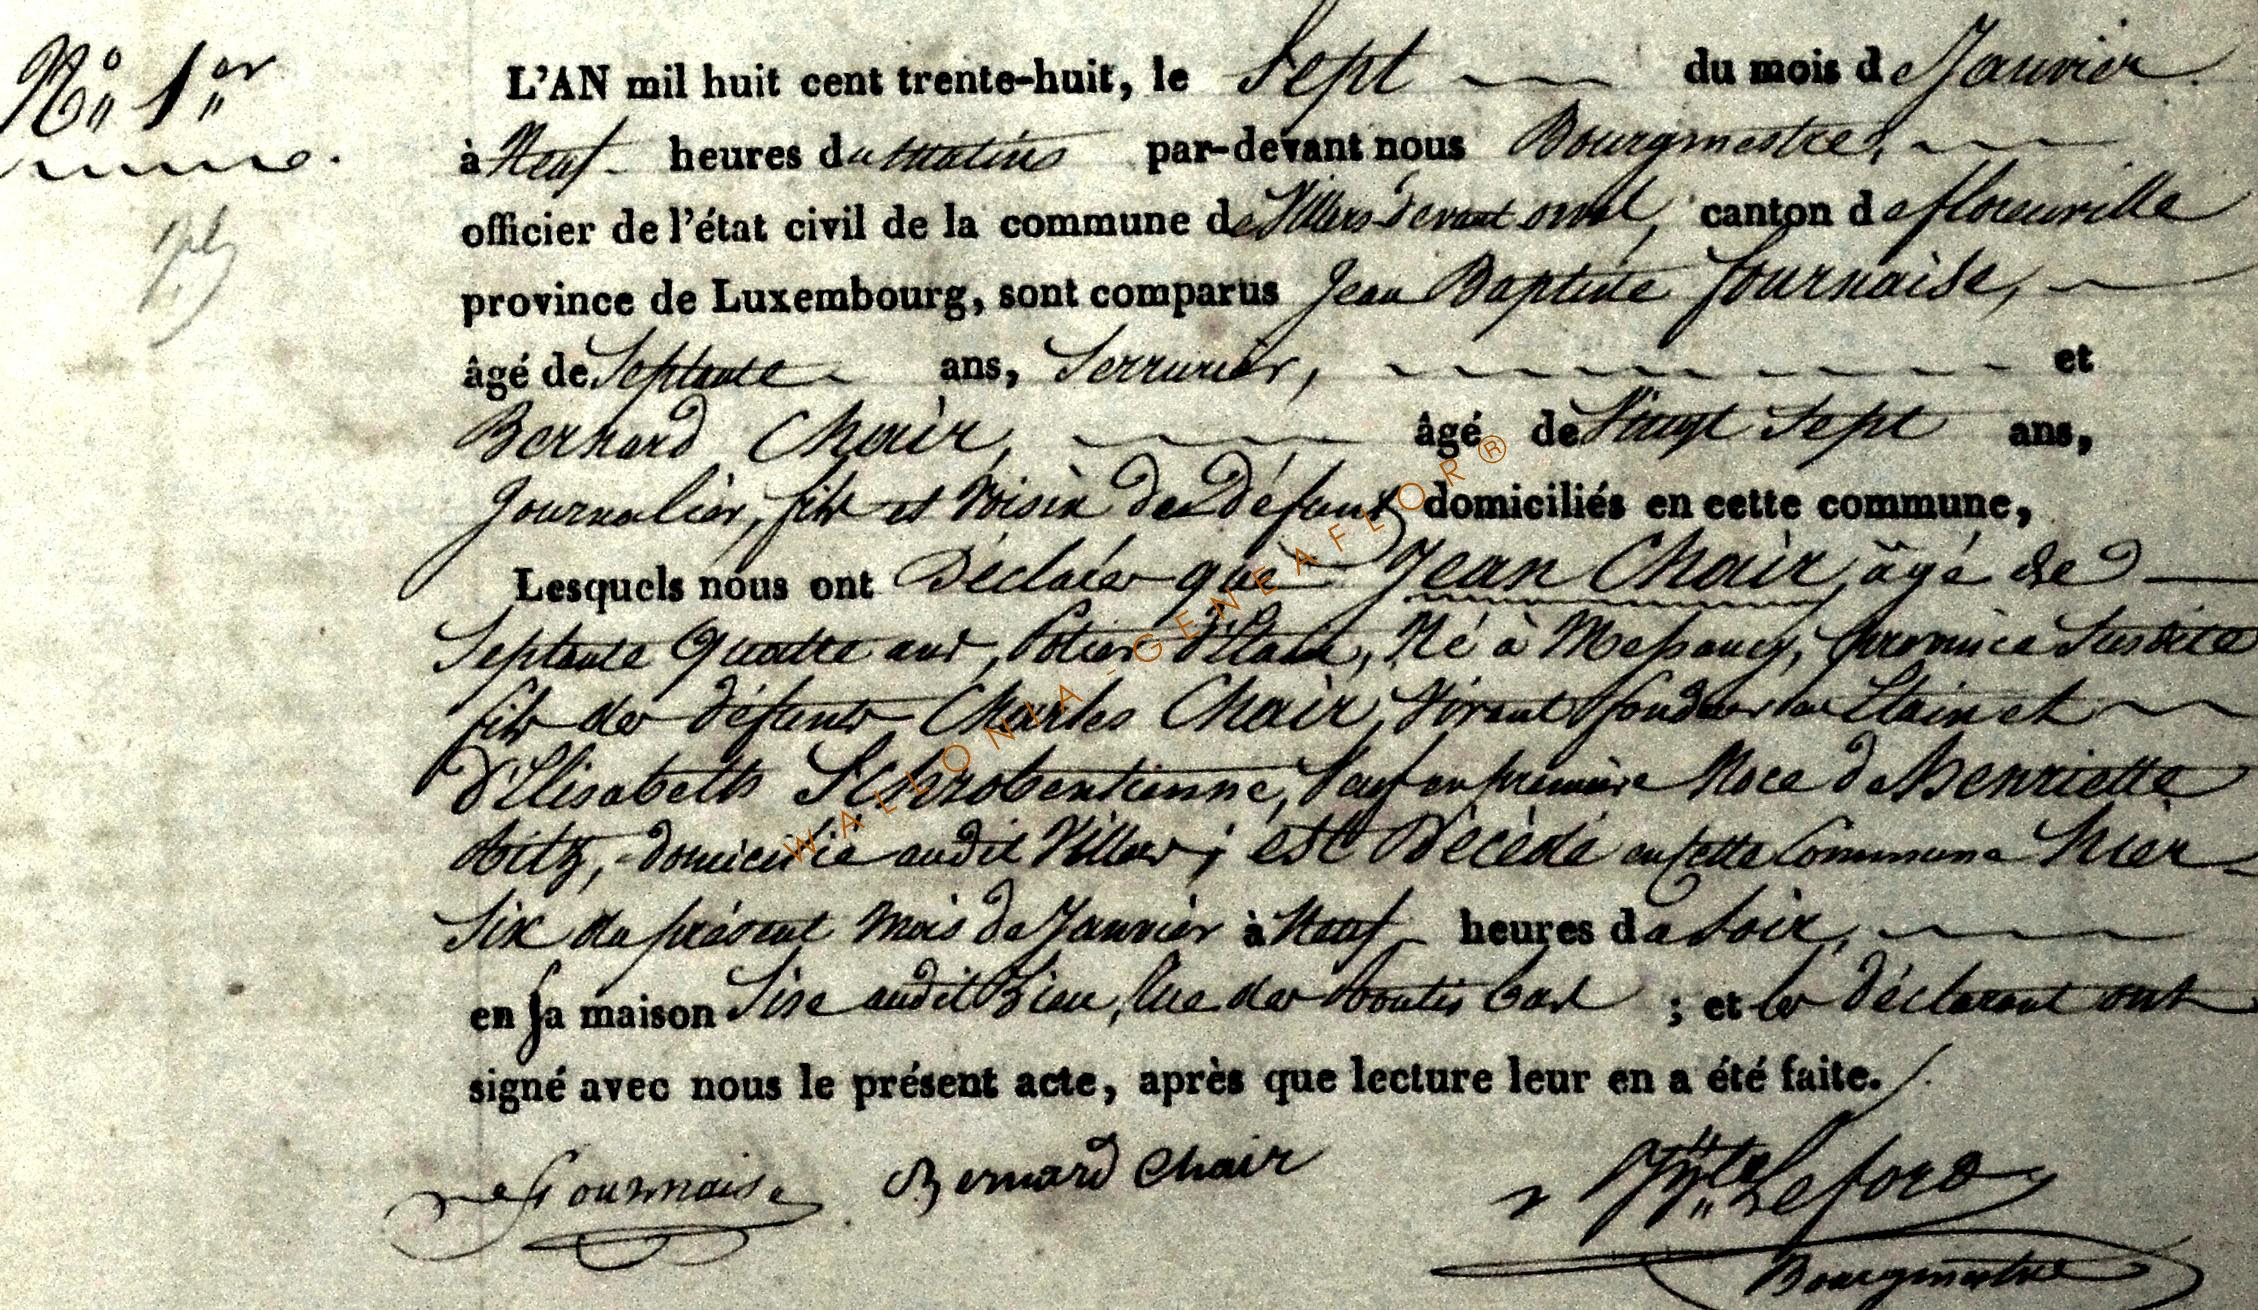 N° 1er
L'AN mil huit cent trente-huit, le Sept du mois de Janvier
à Neuf heures du matin par-devant nous Bourgmestre,
officier de l'état civil de la commune de Villers devant orval, canton de florenville
province de Luxembourg, sont comparus Jean Baptiste fournaise,
âgé de Septante ans, Serrurier, et
Bernard Chair, âgé de Vingt Sept ans,
Journalier, fils et Voisin du défunt domiciliés en cette commune,
Lesquels nous ont Déclaré que Jean Chair, âgé de
Septante Quatre ans, Potier d'Etain, Né à Messancy, province Susdite
fils des défunts Charles Chair, Vivant fondeur en Etain et
d'Elisabeth Veuf en première Noce de Henriette
domicilié audit Villers; est Décédé en cette Commune hier
Six du présent mois de Janvier à Neuf heures du Soir,
en sa maison Sise audit Lieu, Rue des ; et les déclarant ont
signé avec nous le présent acte, après que lecture leur en a été faite.
Fournaise Bernard Chair
Bourgmestre
WALLONIA-GENEAFLOR®